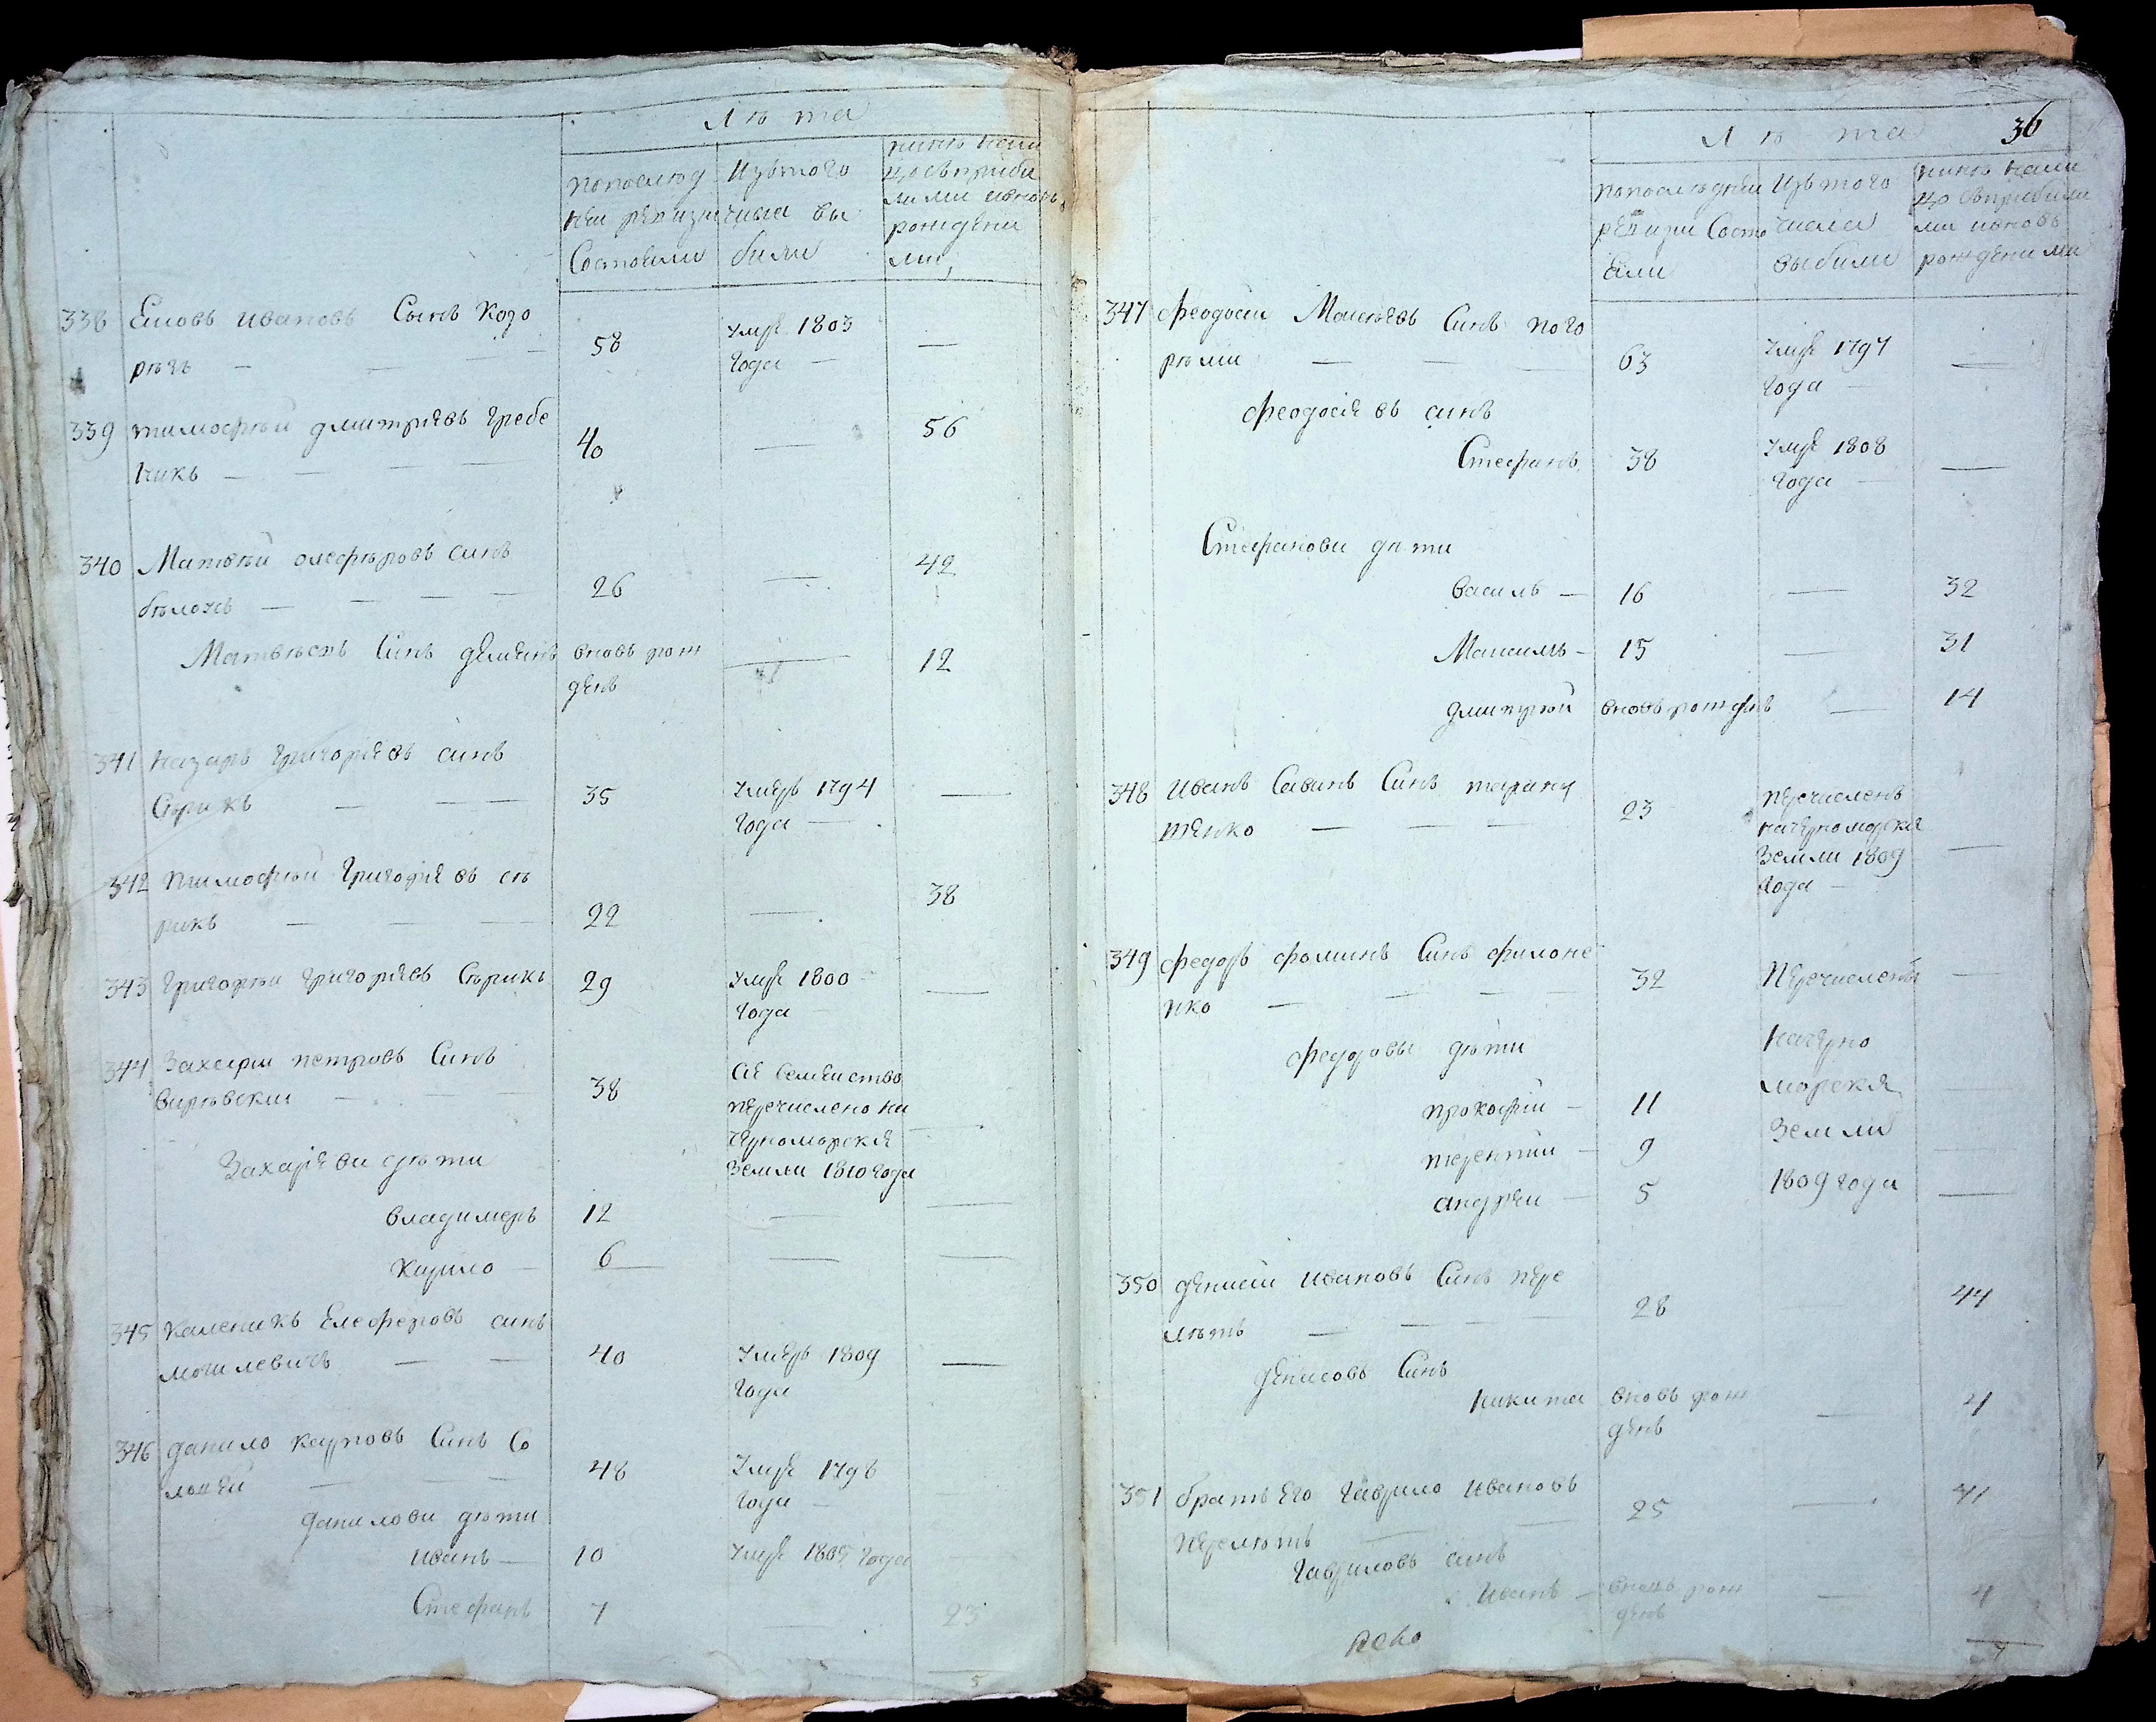 Лѣта
попослѣд
ней ревизи
Состояли
Изътого
числа вы
были
нинѣ нали
цо съприби
лими ивновь
рожденн
ми,
338 Еиовъ ивановъ Сынъ Козо
рѣзъ — 58 Умре 1803
года — —
339 тимофѣй дмитріевъ гребе
никъ — 40 — 56
340 Матвѣй олефѣровъ синъ
бѣлоусъ — 26 — 42
Матвѣевъ Синъ демянъ вновь рож
денъ — 12
341 Назаръ григоріевъ синъ
Сѣрикъ — 35 Умеръ 1794
года — —
342 тимофѣй григоріевъ сѣ
рикъ — 22 — 38
343 григорѣй григоріевъ Сѣрикъ 29 Умре 1800
года — —
344 Захарій петровъ Синъ
Вирѣвский — 38 Сіе Семейство
перечислено на
Черноморскіе
Земли 1810 года
Захаріеви дѣти
владимеръ 12 — —
Кирило — 6 — —
345 Каленикъ Елеферовъ синъ
могилевичъ — 40 Умеръ 1809
года —
346 данило карповъ Синъ Со
лопѣй — 48 Умре 1798
года —
данилови дѣти
иванъ — 10 Умре 1805 года
Стефанъ 7 — 23
5
36
Лѣта
попослѣдней
ревизии Состо
яли
Изътого
числа
выбили
нинѣ нали
цо съприбили
ми ивновь
рожденими
347 феодосий Моисѣевъ Синъ пого
рѣлий — 63 Умре 1797
года — —
феодосіевъ синъ
Стефанъ 38 Умре 1808
года — —
Стефанови дѣти
василь — 16 — 32
Мануилъ — 15 — 31
дмитрѣй вновь рожденъ — 14
348 Иванъ Савинъ Синъ таран
тенко — 23 перечисленъ
начерноморскіе
Земли 1809
года — —
349 федоръ фоминъ Синъ филоне
нко — 32 Перечислены —
федоровы дѣти
начерно
морскія
прокофій — 11 —
терентий — 9 Земли
андрей — 5 1809 года —
350 денисий ивановъ Синъ пере
лѣтъ — 28 — 44
денисовъ Синъ
никита вновь рож
денъ — 4
351 братъ Его гаврило ивановъ
перелѣтъ — 25 — 41
гавриловъ синъ
иванъ — вновь рож
денъ — 4
7